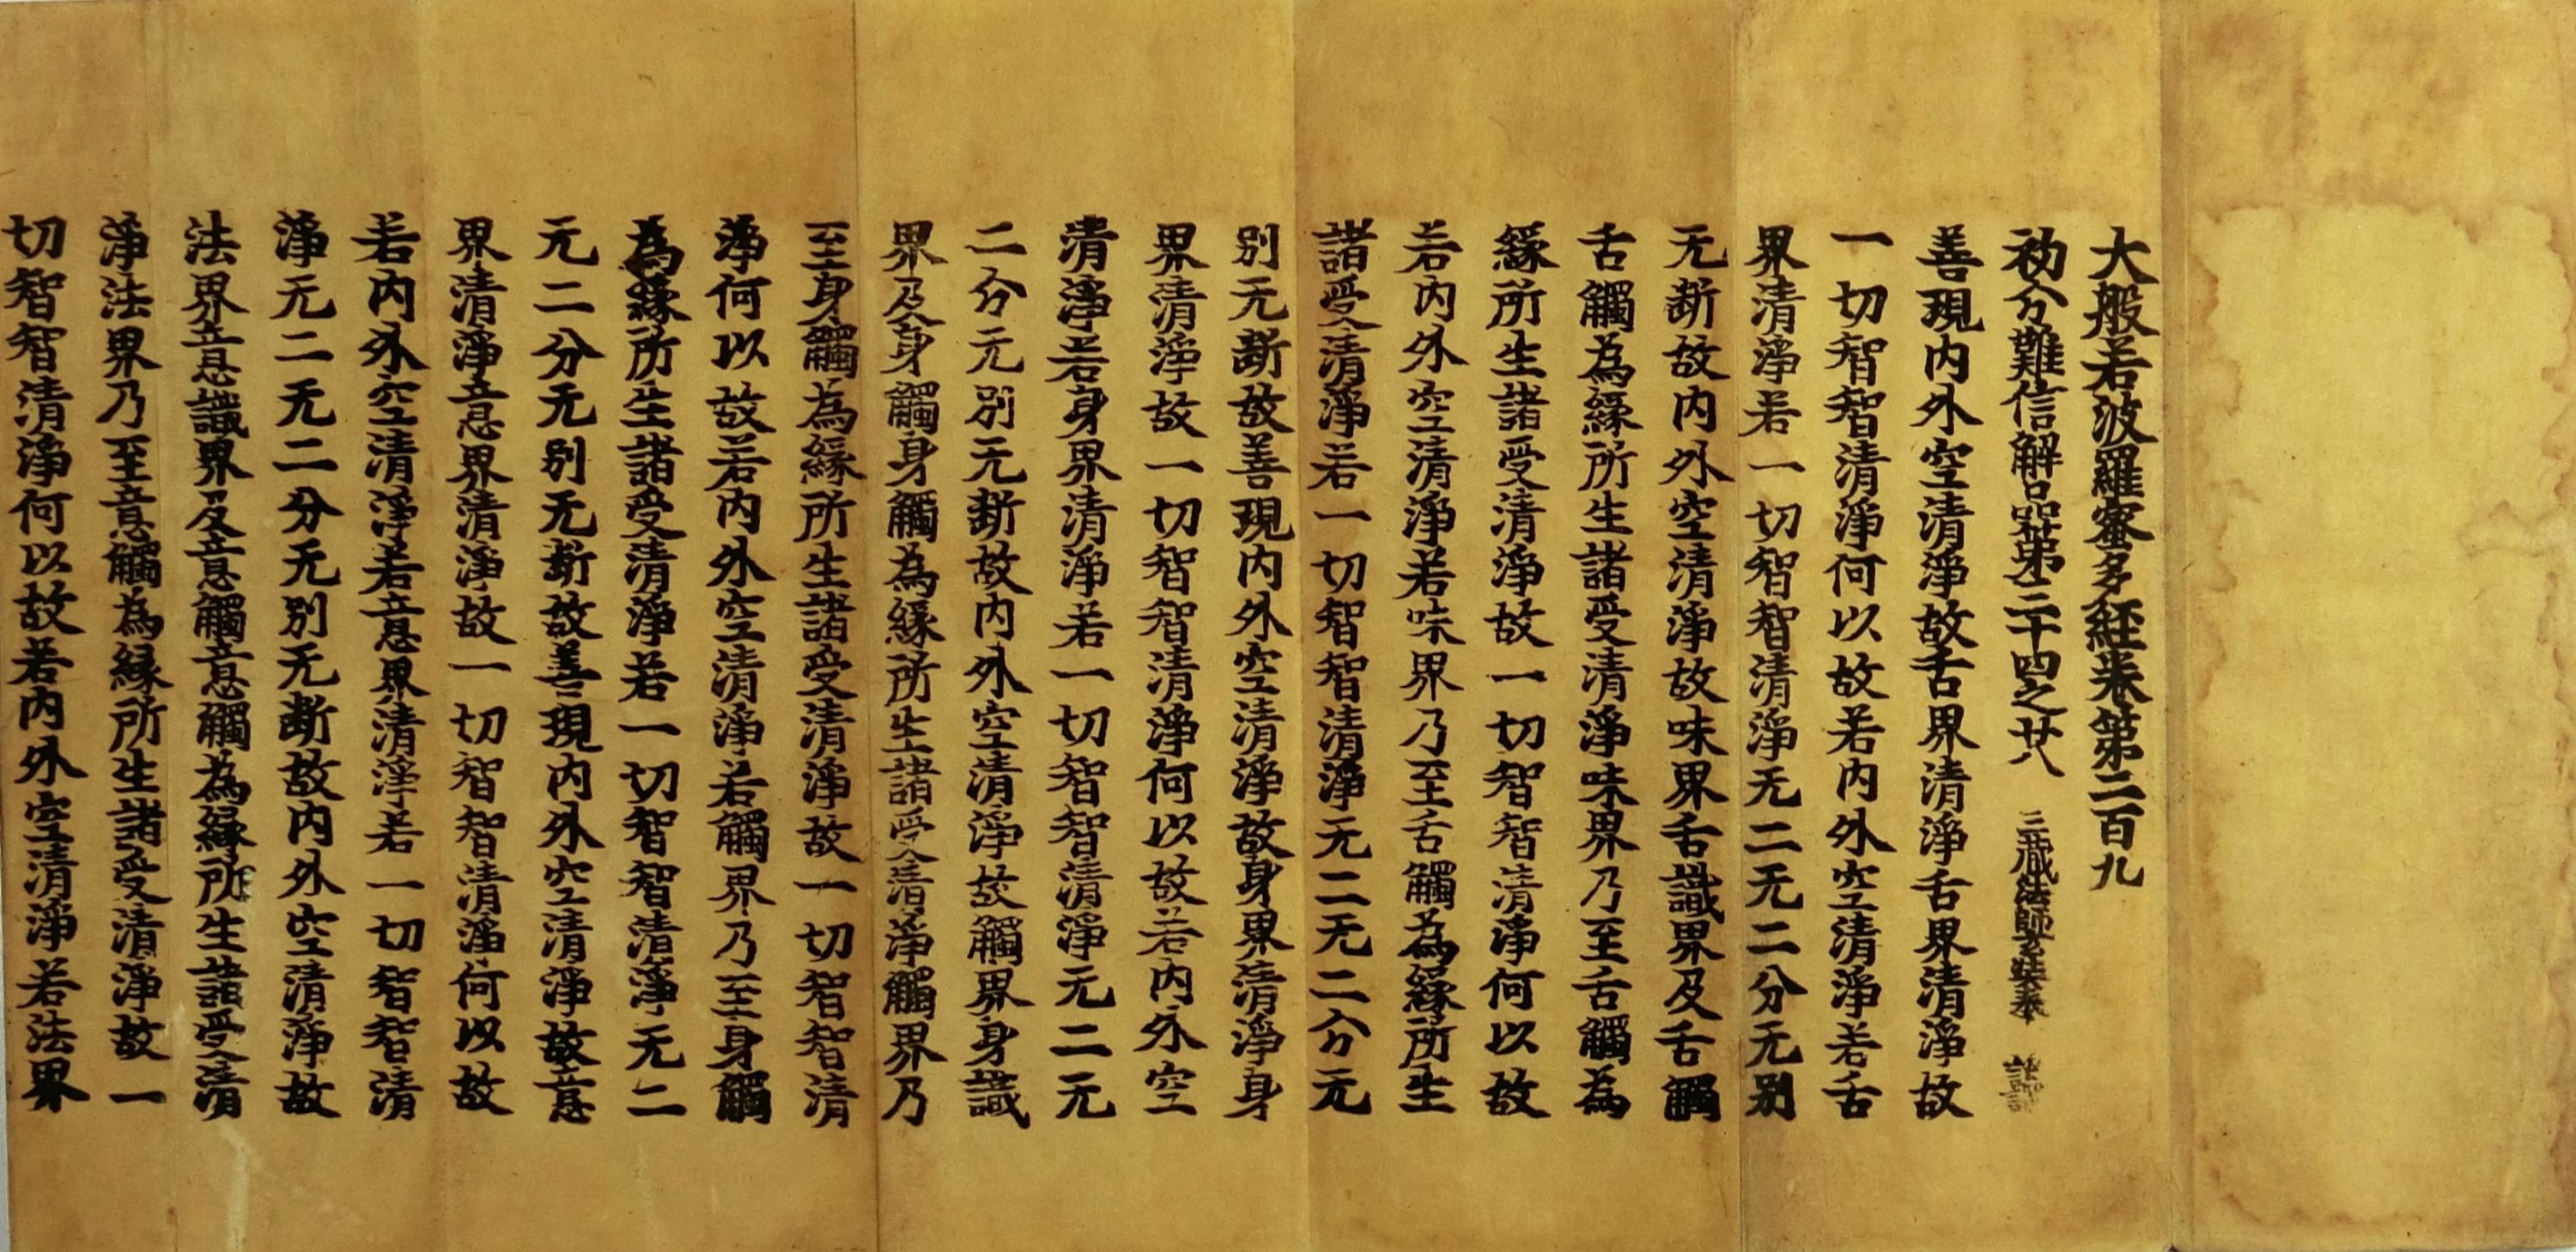 大般若波羅蜜多經卷第二百九
初分難信解品第三十四之廿八 三藏法師玄奘奉 詔譯
善現内外空清淨故舌界清淨舌界清淨故
一切智智清淨何以故若内外空清淨若舌
界清淨若一切智智清淨无二无二分无别
无斷故内外空清淨故味界舌識界及舌觸
舌觸為緣所生諸受清淨味界乃至舌觸為
緣所生諸受清淨故一切智智清淨何以故
若内外空清淨若味界乃至舌觸為緣所生
諸受清淨若一切智智清淨无二无二分无
别无斷故善現内外空清淨故身界清淨身
界清淨故一切智智清淨何以故若内外空
清淨若身界清淨若一切智智清淨无二无
二分无别无斷故内外空清淨故觸界身識
界及身觸身觸為緣所生諸受清淨觸界乃
至身觸為緣所生諸受清淨故一切智智清
淨何以故若内外空清淨若觸界乃至身觸
為緣所生諸受清淨若一切智智清淨无二
无二分无别无斷故善現内外空清淨故意
界清淨意界清淨故一切智智清淨何以故
若内外空清淨若意界清淨若一切智智清
淨无二无二分无别无斷故内外空清淨故
法界意識界及意觸意觸為緣所生諸受清
淨法界乃至意觸為緣所生諸受清淨故一
切智智清淨何以故若内外空清淨若法界